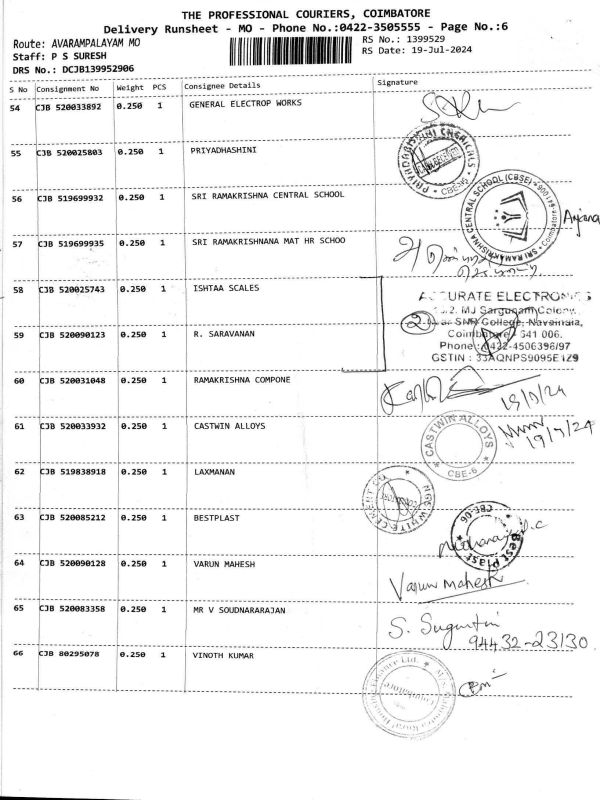 THE PROFESSIONAL COURIERS, COIMBATORE
Delivery Runsheet - MO - Phone No.:0422-3505555 - Page No.:6
Route: AVARAMPALAYAM MO
RS No.: 1399529
Staff: P S SURESH
RS Date: 19-Jul-2024
DRS No.: DCJB139952906
S No Consignment No Weight PCS Consignee Details Signature
54 CJB 520033892 0.250 1 GENERAL ELECTROP WORKS
55 CJB 520025803 0.250 1 PRIYADHASHINI
PRIYADARSHINI CHEMICALS
CBE-06
56 CJB 519699932 0.250 1 SRI RAMAKRISHNA CENTRAL SCHOOL
SRI RAMAKRISHNA CENTRAL SCHOOL (CBSE)
Coimbatore
Anjana
57 CJB 519699935 0.250 1 SRI RAMAKRISHNANA MAT HR SCHOO
58 CJB 520025743 0.250 1 ISHTAA SCALES
ACCURATE ELECTRONICS
MJ Sargunam Colony,
2
SNR College, Navaindia,
59 CJB 520090123 0.250 1 R. SARAVANAN
Coimbatore - 641 006.
Phone : 0422-4506396/97
GSTIN : 33AQNPS9095E1Z9
60 CJB 520031048 0.250 1 RAMAKRISHNA COMPONE
61 CJB 520033932 0.250 1 CASTWIN ALLOYS
CASTWIN ALLOYS
CBE-6
19/7/24
62 CJB 519838918 0.250 1 LAXMANAN
WHITE CEMENT
63 CJB 520085212 0.250 1 BESTPLAST
Best Plast
CBE-06
64 CJB 520090128 0.250 1 VARUN MAHESH
Varun Mahesh
65 CJB 520083358 0.250 1 MR V SOUDNARARAJAN
94432-23130
66 CJB 80295078 0.250 1 VINOTH KUMAR